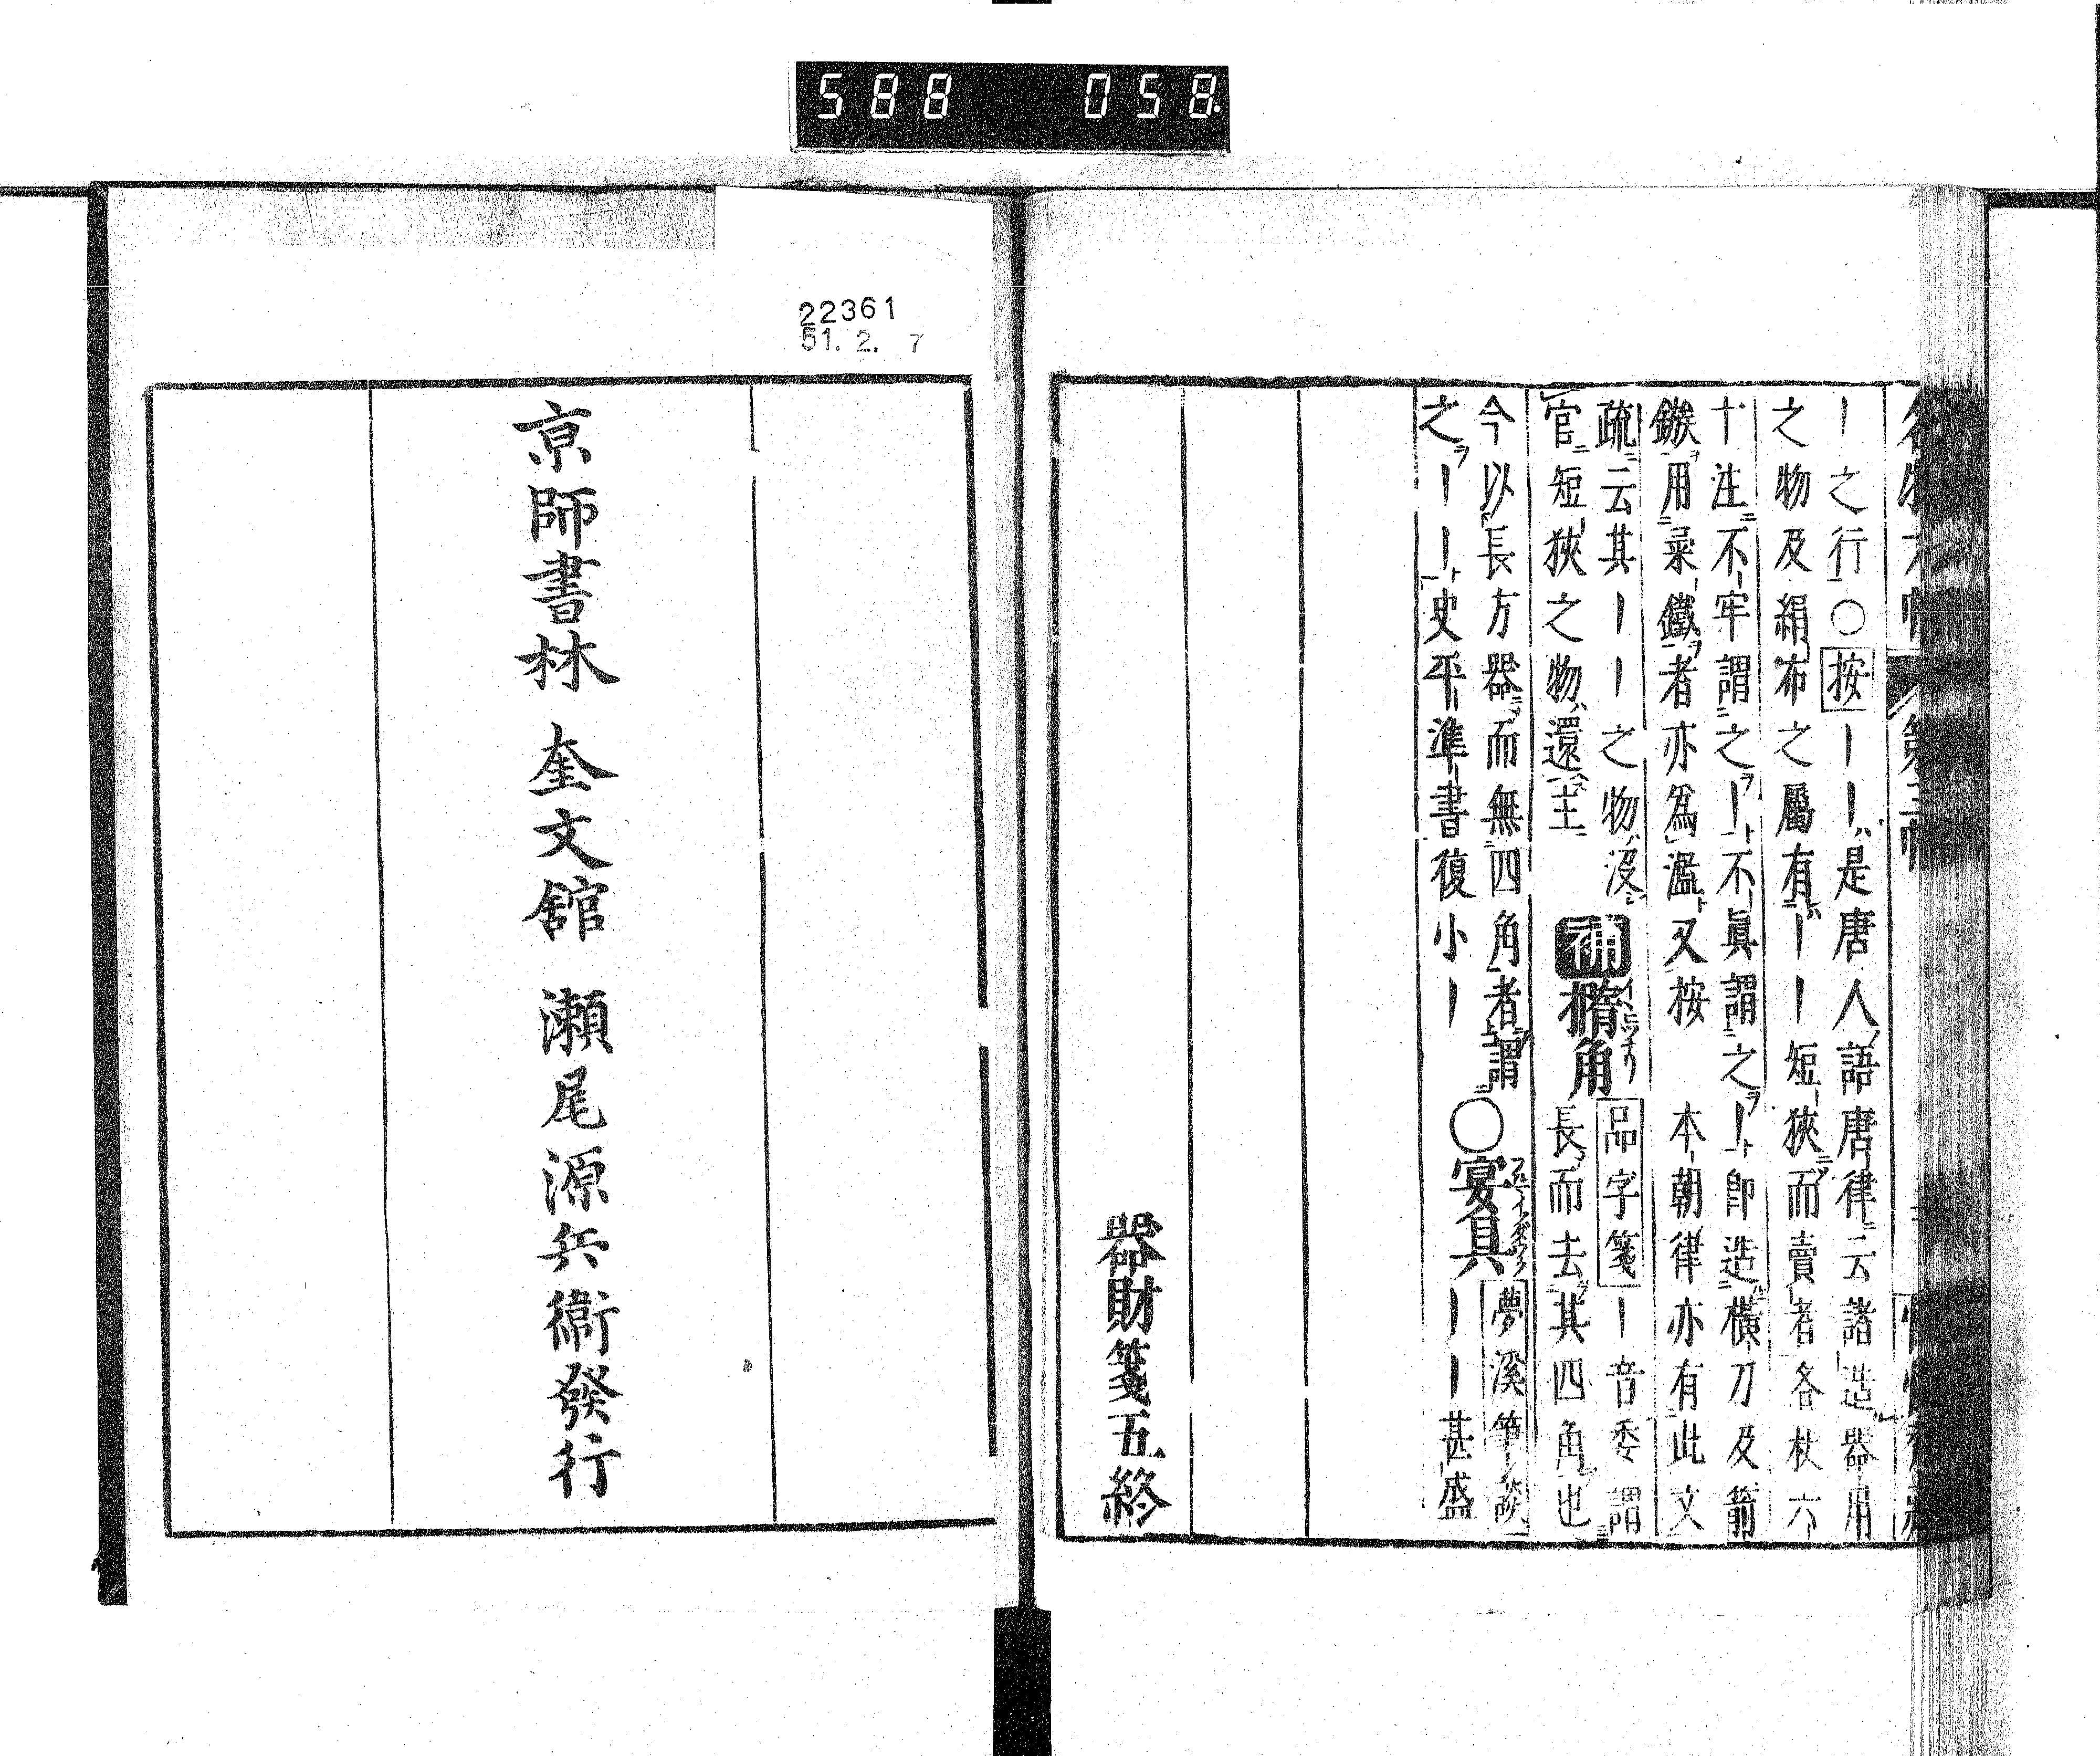 588 058
22361
51.2.7
｜之行○按｜｜是唐人語唐律云諸造器用
之物及絹布之屬有｜｜短狹而賣者各杖六
十注不牢謂之｜不眞謂之｜即造橫刀及箭
鏃用柔鐵者亦爲濫又按 本朝律亦有此文
疏云其｜｜之物沒
官短狹之物還主
補 橢角
品字箋｜音委謂
長而去其四角也
今以長方器而無四角者謂
之｜｜史平準書復小｜
○宴具
夢溪筆談
｜｜甚盛
器財箋五終
京師書林 奎文舘 瀬尾源兵衛發行